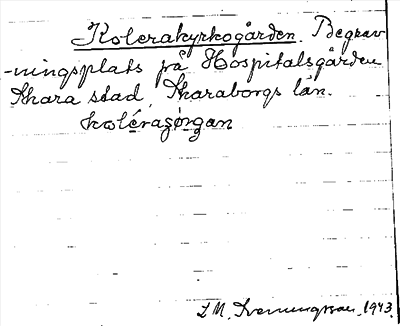 Kolerakyrkogården. Begrav
-ningsplats på Hospitalsgården
Skara stad, Skaraborgs län.
koléragørgan
L M. Svenungsson. 1943.